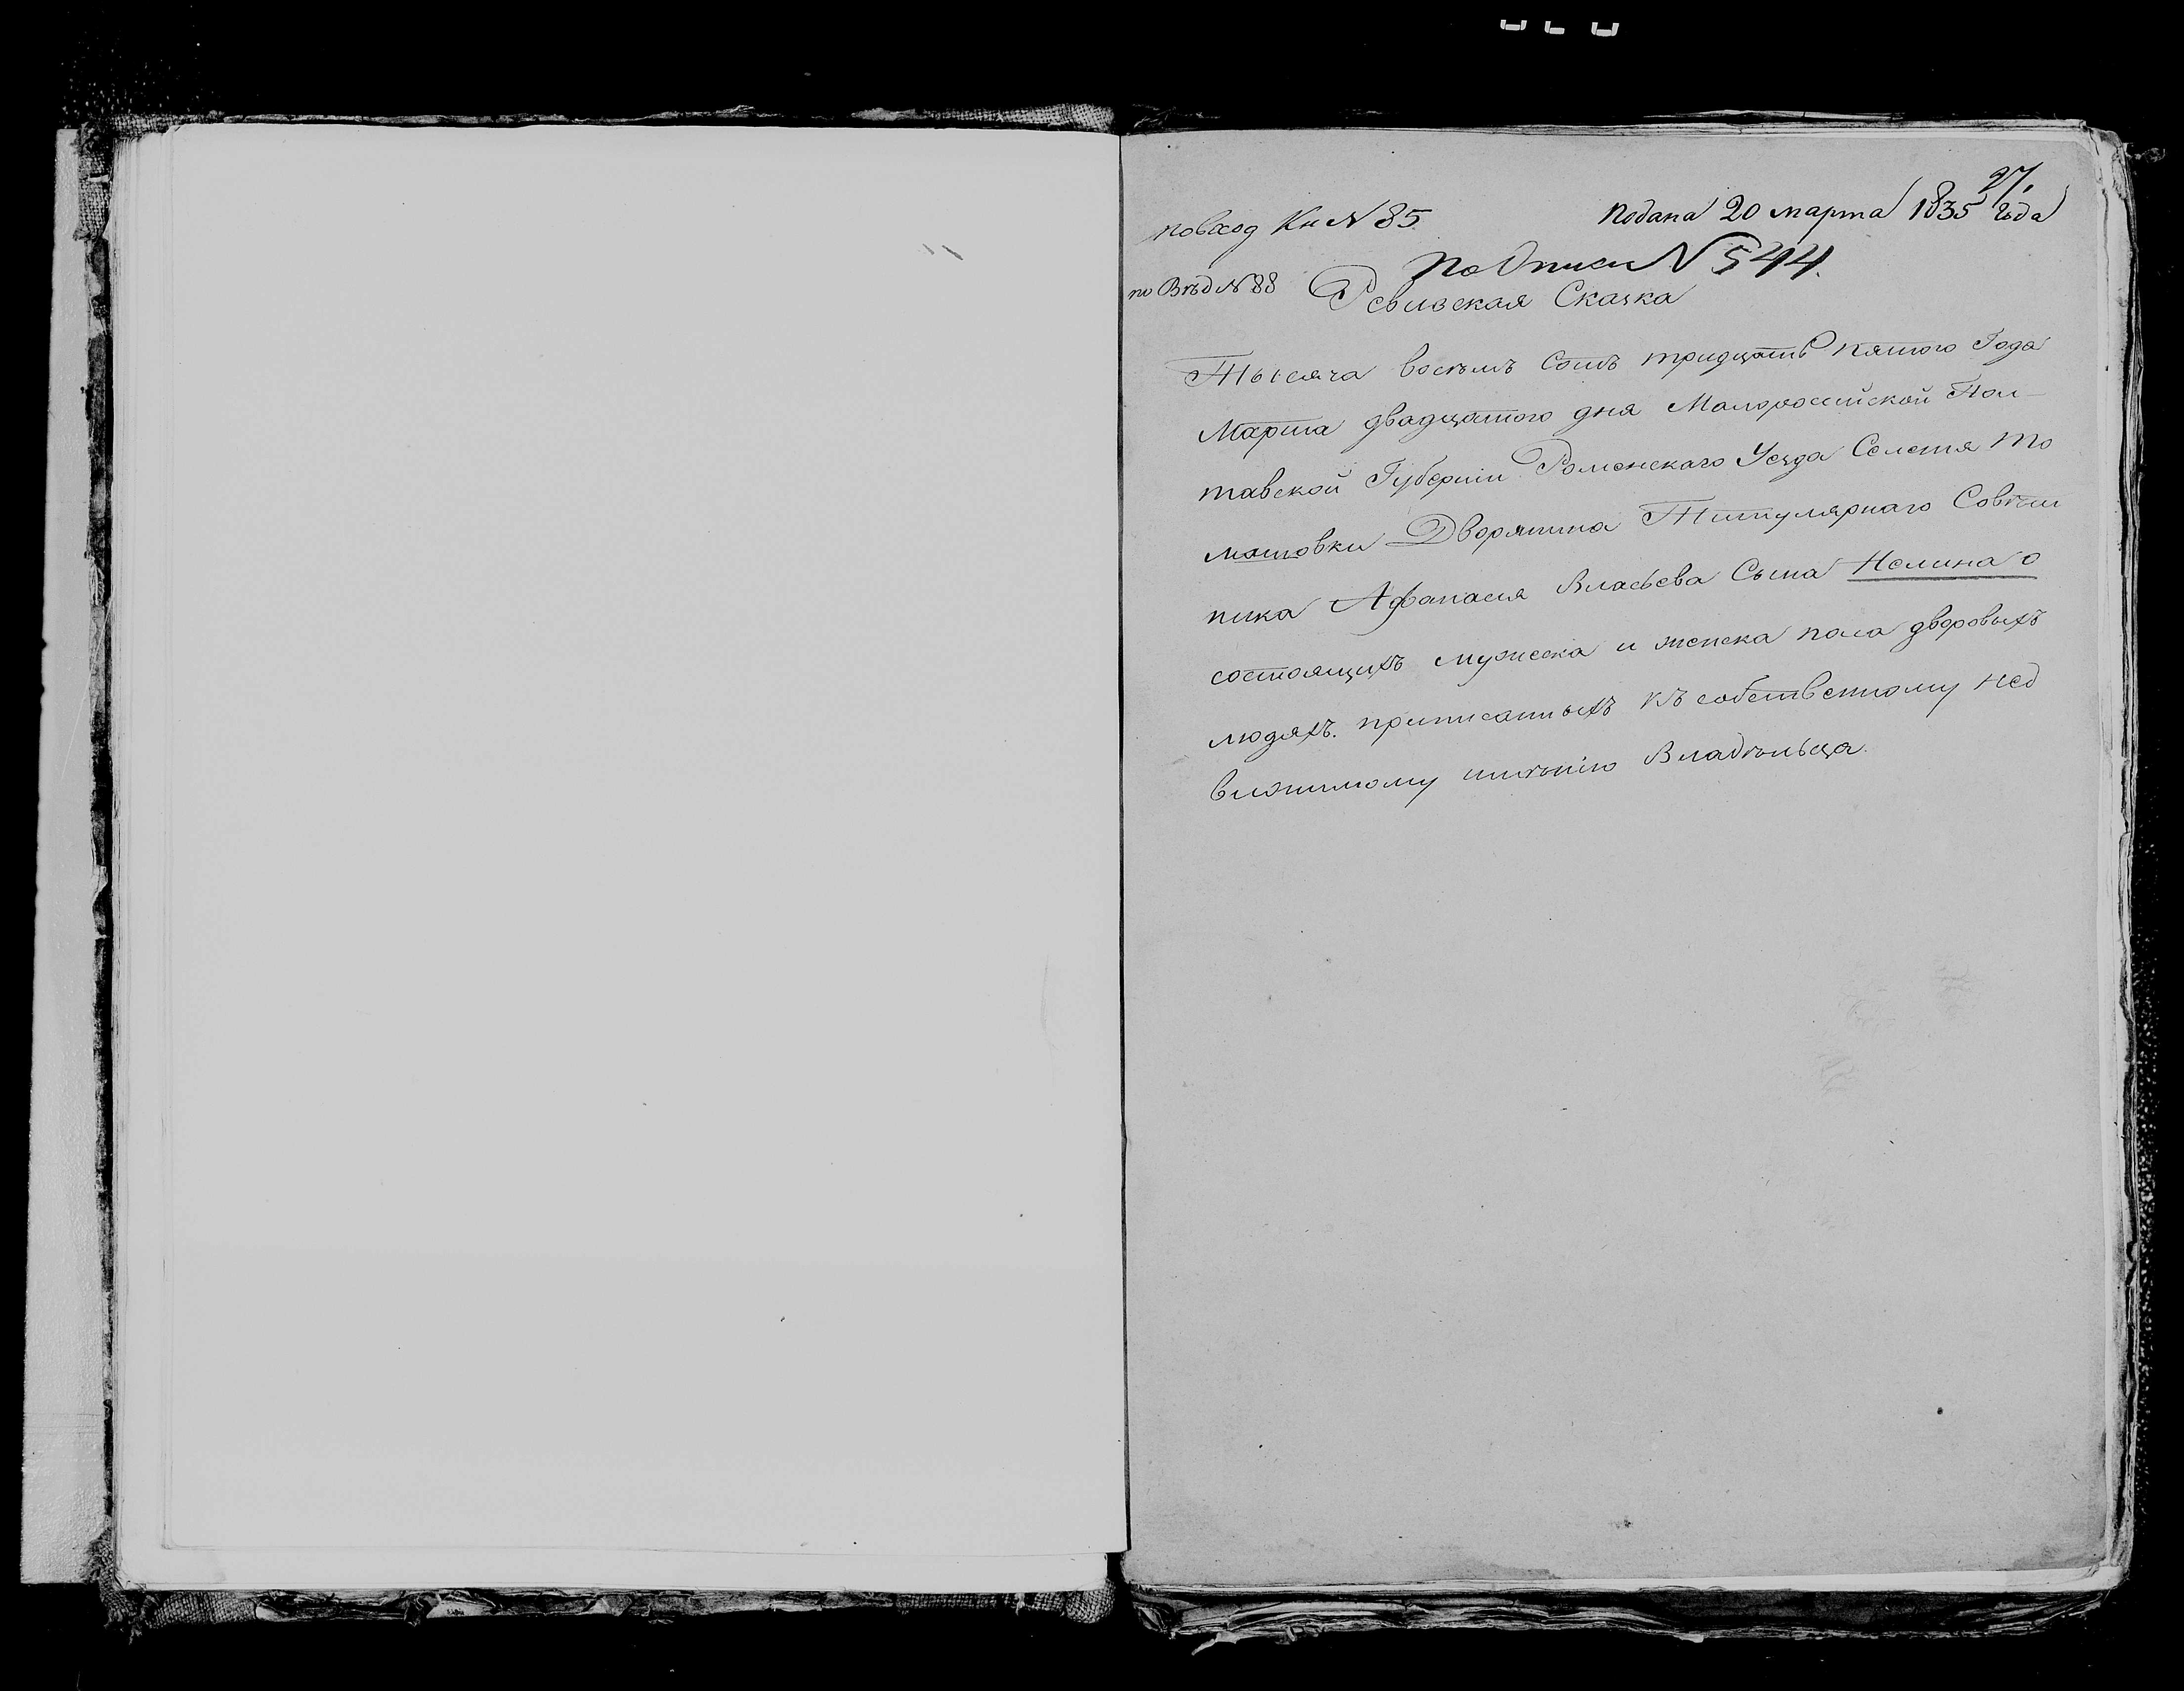 27.
повход Кн N 85.
подана 20 марта 1835 года
по Описи N 544.
по Вѣд N 88
Ревизская Сказка
Тысяча восемъ сотъ тридцать пятого Года
Марта двадцатого дня Малороссийской Пол-
тавской Губернiи Роменскаго Уезда Селения То
машовки Дворянина Титулярнаго Совѣт
ника Афанасия Власьева Сына Нелина о
состоящихъ мужеска и женска пола дворовыхъ
людяхъ. приписанныхъ къ собственному нед
вижимому имѣнiю Владѣльца.